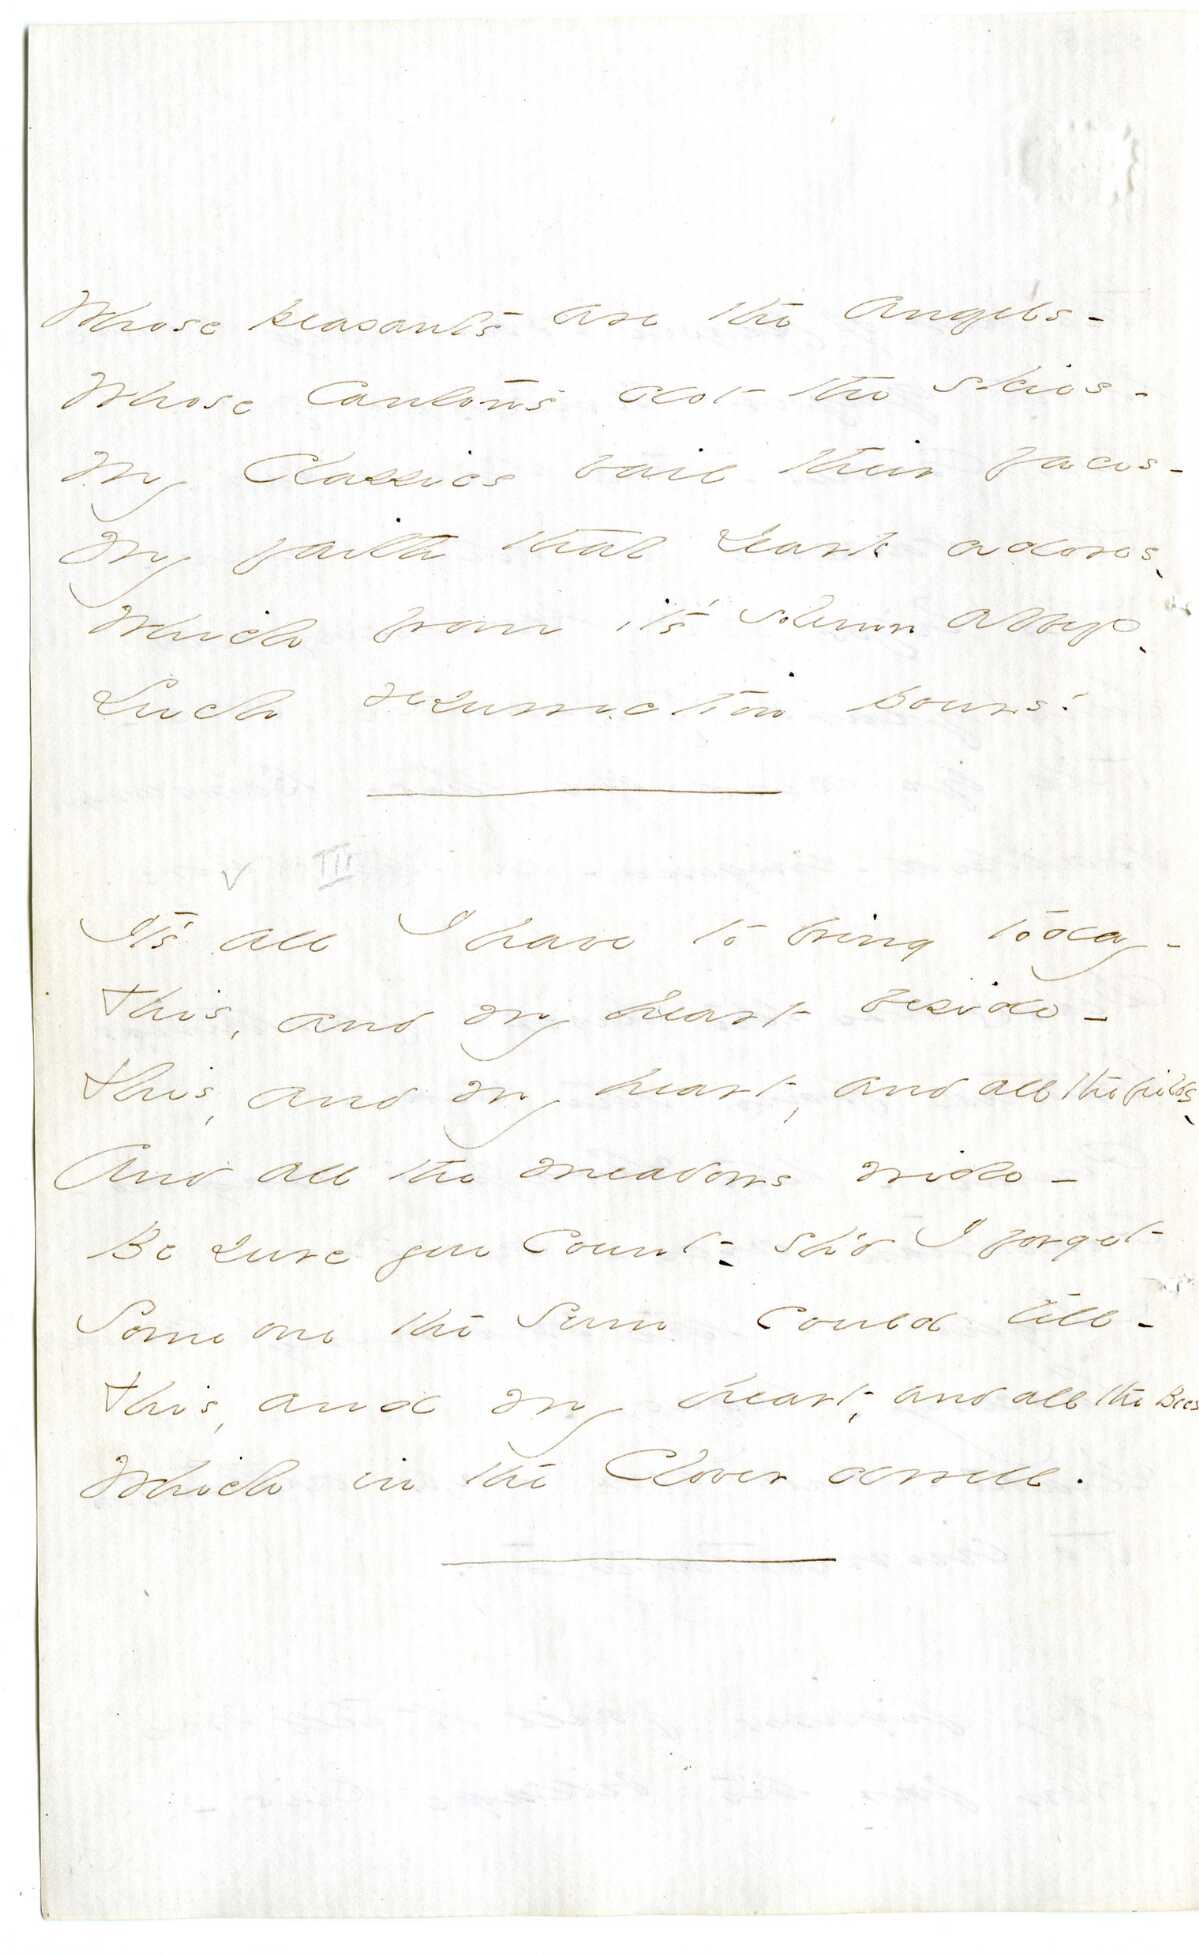 Whose peasants are the Angels -
Whose Cantons dot the skies -
My Classics vail their faces -
My faith that Dark adores,
Which from it's solemn abbeys,
Such resurrection pours!
V III
It's all I have to bring today -
This, and my heart beside -
This, and my heart, and all the fields,
And all the meadows wide -
Be sure you count - sh'd I forget
Some one the sum could tell -
This, and my heart, and all the Bees
Which in the Clover dwell.